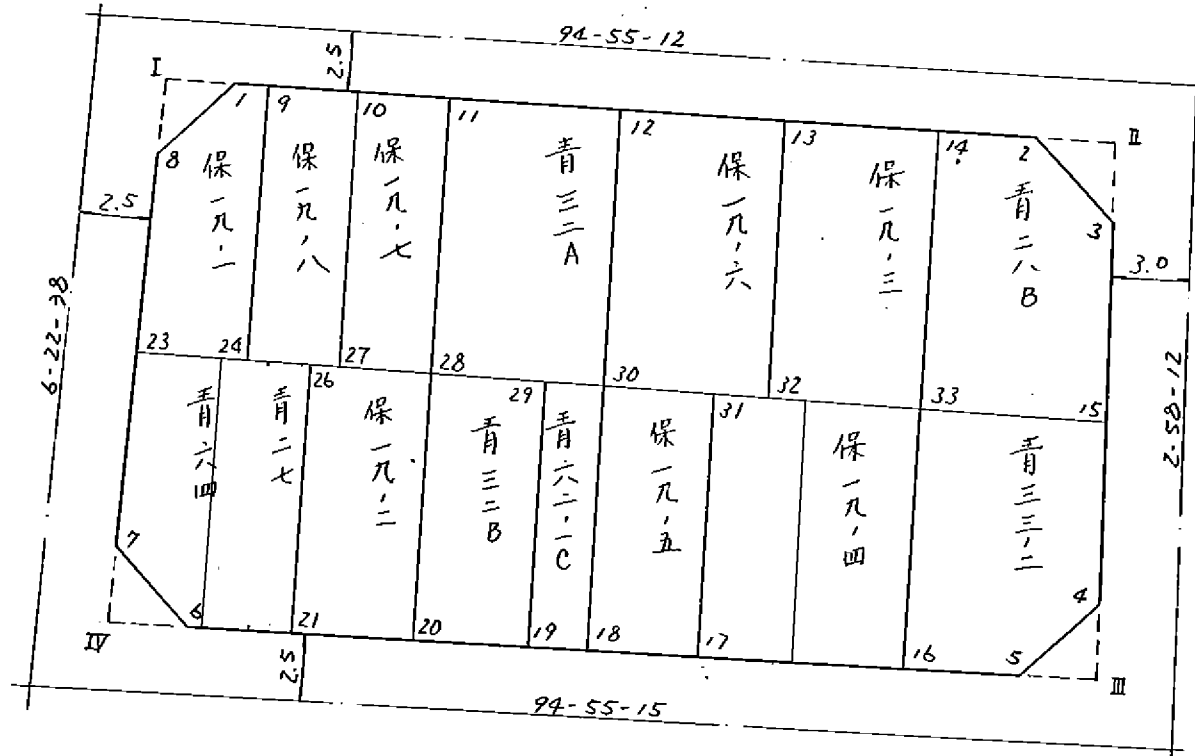 94-55-12
2.5
I
1
9
10
11
12
13
14
2
II
8
3
保一九,一
保一九,八
保一九,七
青三二A
保一九,六
保一九,三
青二八B
2.5
3.0
6-22-38
2-58-12
23
24
26
27
28
29
30
31
32
33
15
青六四
青二七
保一九,二
青三二B
青六二,一C
保一九,五
保一九,四
青三三,二
7
4
6
21
20
19
18
17
16
5
IV
III
2.5
94-55-15